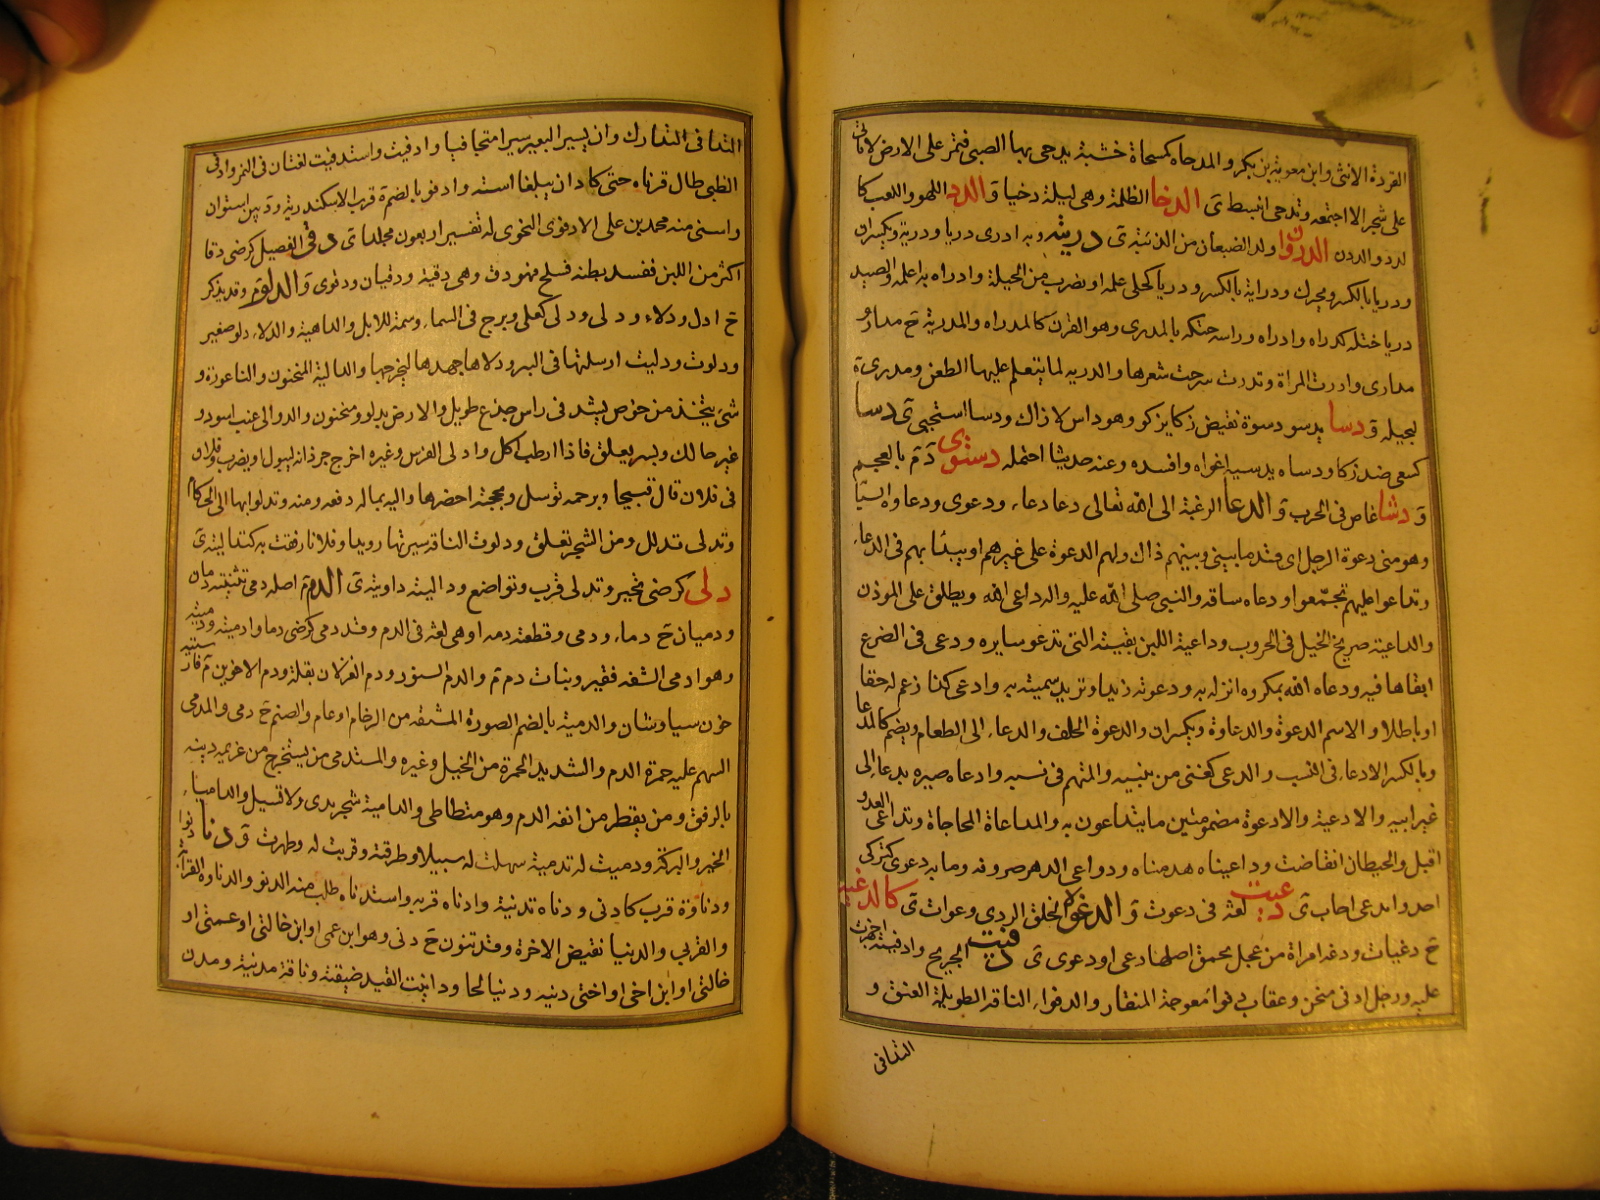 القردة الانثى وابن معوية بن بكر والمدحاه كمسحاة خشبة يدحى بها الصبى فتمر على الارض لا تاتى
على شئ الا اجتحفه وتدحى انبسط ى الدخا الظلمة وهى ليلة دخيا و الدد اللهو واللعب كا
لدد والددن الدروان ولد الضبعان من الذئبة ى دريته وبه ادرى دريا ودرية ويكسران
ودريانا بالكسر ويحرك ودراية بالكسر ودريا كحلى علمه او بضرب من الحيلة وادراه به اعلمه والصيد
دريا ختله كدراه وادراه وراسه حكه بالمدرى وهو القرن كالمدراه والمدرية ج مدار و
مدارى وادرت المراة وتدرت سرحت شعرها والدرية لما يتعلم عليها الطعن ومدرى ة
لجيله و دسا يدسو دسوة نقيض زكا يزكو وهو داس لا زاك ودسا استخفى ى دسا
كسعى ضد زكا ودساه تدسية اغواه وافسده وعنه حديثا احتمله دستوى د م بالعجم
و دشا غاص فى الحرب و الدعا الرغبة الى الله تعالى دعا دعاء ودعوى ودعاه
وهو منى دعوة الرجل اى قدر ما بينى وبينهم ذاك ولهم الدعوة على غيرهم اى يبدا بهم فى الدعاء
وتداعوا عليهم تجمعوا ودعاه ساقه والنبى صلى الله عليه والله داعى الله ويطلق على الموذن
والداعية صريخ الخيل فى الحروب وداعية اللبن بقيته التى تدعو سايره ودعى فى الضرع
ابقاها فيه ودعاه الله بمكروه انزله به ودعوته زيدا وبزيد سميته به وادعى كذا زعم له حقا
او باطلا والاسم الدعوة والدعاوة ويكسران والدعوة الحلف والدعاء الى الطعام ويضم كالمدعا
وبالكسر الادعاء فى النسب والدعى كغنى من تبنيته والمتهم فى نسبه وادعاه صيره يدعا الى
غير ابيه والادعية والادعوة مضمومتين ما يتداعون به والمداعاة المحاجاة وتداعى العدو
اقبل والحيطان انقاضت وداعيناه هدمناه ودواعى الدهر صروفه وما به دعوى كتركى
احد واندعى اجاب ى دعيت لغة فى دعوت و الدغوة الخلق الردى ج دغوات ى كالدغية
ج دغيات ودغه امراة من عجل يحمق اصلها دغى او دغو ى دفيت الجريح وادفيته اجهزت
عليه ورجل ادفى منحن وعقاب دفوا معوجة المنقار والدفواء الناقة الطويلة العنق و
التدافى
التدافى التدارك وان يسير البعير سيرا متجافيا وادفيت واستدفيت لغتان فى الهمز وادفى
الظبى طال قرناه حتى كادا ان يبلغا استه وادفو بالضم ة قرب الاسكندرية و د بين اسوان
واسنى منه محمد بن على الادفوى النحوى له تفسير اربعون مجلدا ى دقى الفصيل كرضى دقا
اكثر من اللبن ففسد بطنه فسلح فهو دق وهى دقية ودقيان ودقوى و الدلو م وقد يذكر
ج ادل ودلاء ودلى ودلى كعلى وبرج فى السماء وسمة للابل والداهية والدلاه دلو صغير
ودلوت ودليت ارسلتها فى البير ودلاها جبذها ليخرجها والدالية المنجنون والناعورة و
شئ يتخذ من خوص يشد فى راس جذع طويل والارض بدلو ومنجنون والدوالى عنب اسود و
غير حالك وبسر يعلق فاذا ارطب اكل وادلى الفرس وغيره اخرج جرذانه ليبول او يضرب وفلان
فى فلان قال قبيحا وبرحمه توسل وبحجته احضرها واليه بماله دفعه ومنه وتدلوا بها الى الحكام
وتدلى تدلل ومن الشجر تعلق ودلوت الناقة سيرتها رويدا وفلانا رفقت به كداليته ى
دلى كرضى تحير وتدلى قرب وتواضع وداليته داويته ى الدم م اصله دمى تثنيته دمان
ودميان ج دماء ودمى وقطعته دمه او هى لغة فى الدم وقد دمى كرضى دما وادميته ودميته
وهو ادمى الشفه فقير وبنات دم نبت م والدم السنور ودم الغزلان بقلة ودم الاخوين م فارسيته
خون سياوشان والدمية بالضم الصورة المنقشه من الرخام او عام والصنم ج دمى والمدمى
السهم عليه حمرة الدم والشديد الحمرة من الخيل وغيره والمستدمى من يستخرج من غريمه دينه
بالرفق ومن يقطر من انفه الدم وهو متطاطى والدامية شجة تدمى ولا تسيل والدامياء
الخير والبركة ودميت له تدمية سهلت له سبيلا وطرقته وقربت له وظهرت و دنا دنوا
ودناوة قرب كادنى ودناه تدنية وادناه قربه واستدناه طلب منه الدنو والدناوة القرابة
والقربى والدنيا نقيض الاخرة وقد تنون ج دنى وهو ابن عمى او ابن خالتى او عمتى او
خالتى او ابن اخى او اختى دنيه ودنيا لحا ودانيت القيد ضيقته وناقة مدنية ومدن